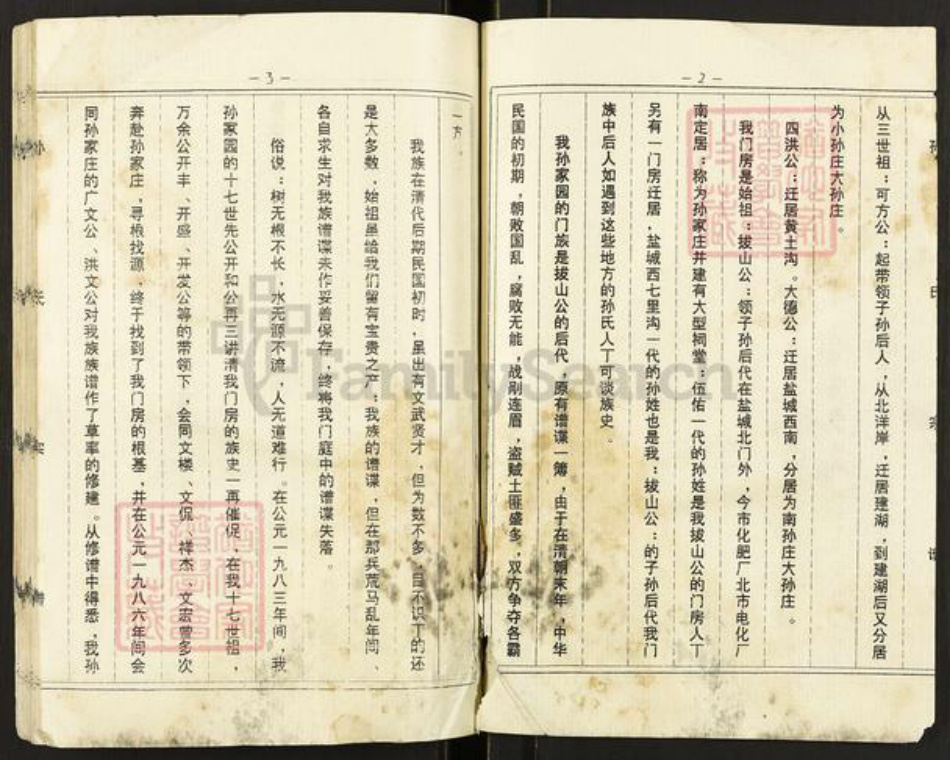 -2-
从三世祖：可方公：起带领子孙后人，从北洋岸，迁居建湖，到建湖后又分居
为小孙庄大孙庄。
四洪公：迁居黄土沟。大德公：迁居盐城西南，分居为南孙庄大孙庄。
我门房是始祖：拔山公：领子孙后代在盐城北门外，今市化肥厂北市电化厂
南定居：称为孙家庄并建有大型祠堂：伍佑一代的孙姓是我拔山公的门房人丁
另有一门房迁居，盐城西七里沟一代的孙姓也是我：拔山公：的子孙后代我门
族中后人如遇到这些地方的孙氏人丁可谈族史。
我孙家园的门族是拔山公的后代，原有谱谍一簿，由于在清朝末年，中华
民国的初期，朝败国乱，腐败无能，战剐连眉，盗贼土匪盛多，双方争夺各霸
-3-
一方。
我族在清代后期民国初时，虽出有文武贤才，但为数不多，目不识丁的还
是大多数，始祖虽给我们留有宝贵之产：我族的谱谍，但在那兵荒马乱年间、
各自求生对我族谱谍未作妥善保存，终将我门庭中的谱谍失落。
俗说：树无根不长，水无源不流，人无道难行。在公元一九八三年间，我
孙家园的十七世先公开和公再三讲清我门房的族史一再催促、在我十七世祖，
万余公开丰、开盛、开发公等的带领下，会同文楼、文侃、祥杰、文宏曾多次
奔赴孙家庄，寻根找源，终于找到了我门房的根基，并在公元一九八六年间会
同孙家庄的广文公、洪文公对我族族谱作了草率的修建。从修谱中得悉，我孙
FamilySearch